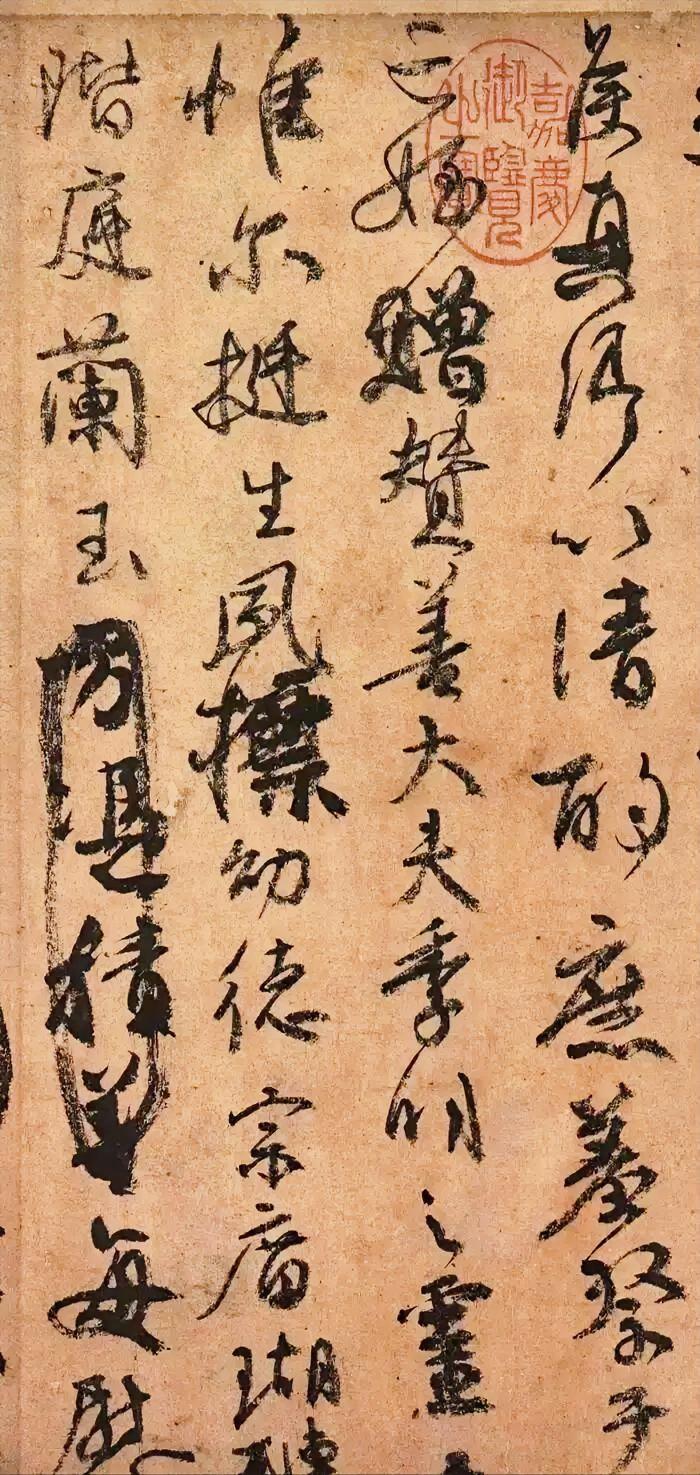 侯真卿以清酌庶羞祭于
亡姪贈贊善大夫季明之靈
惟尔挺生夙標幼德宗廟瑚璉
階庭蘭玉方憑積善每慰
嘉慶御覽之寶